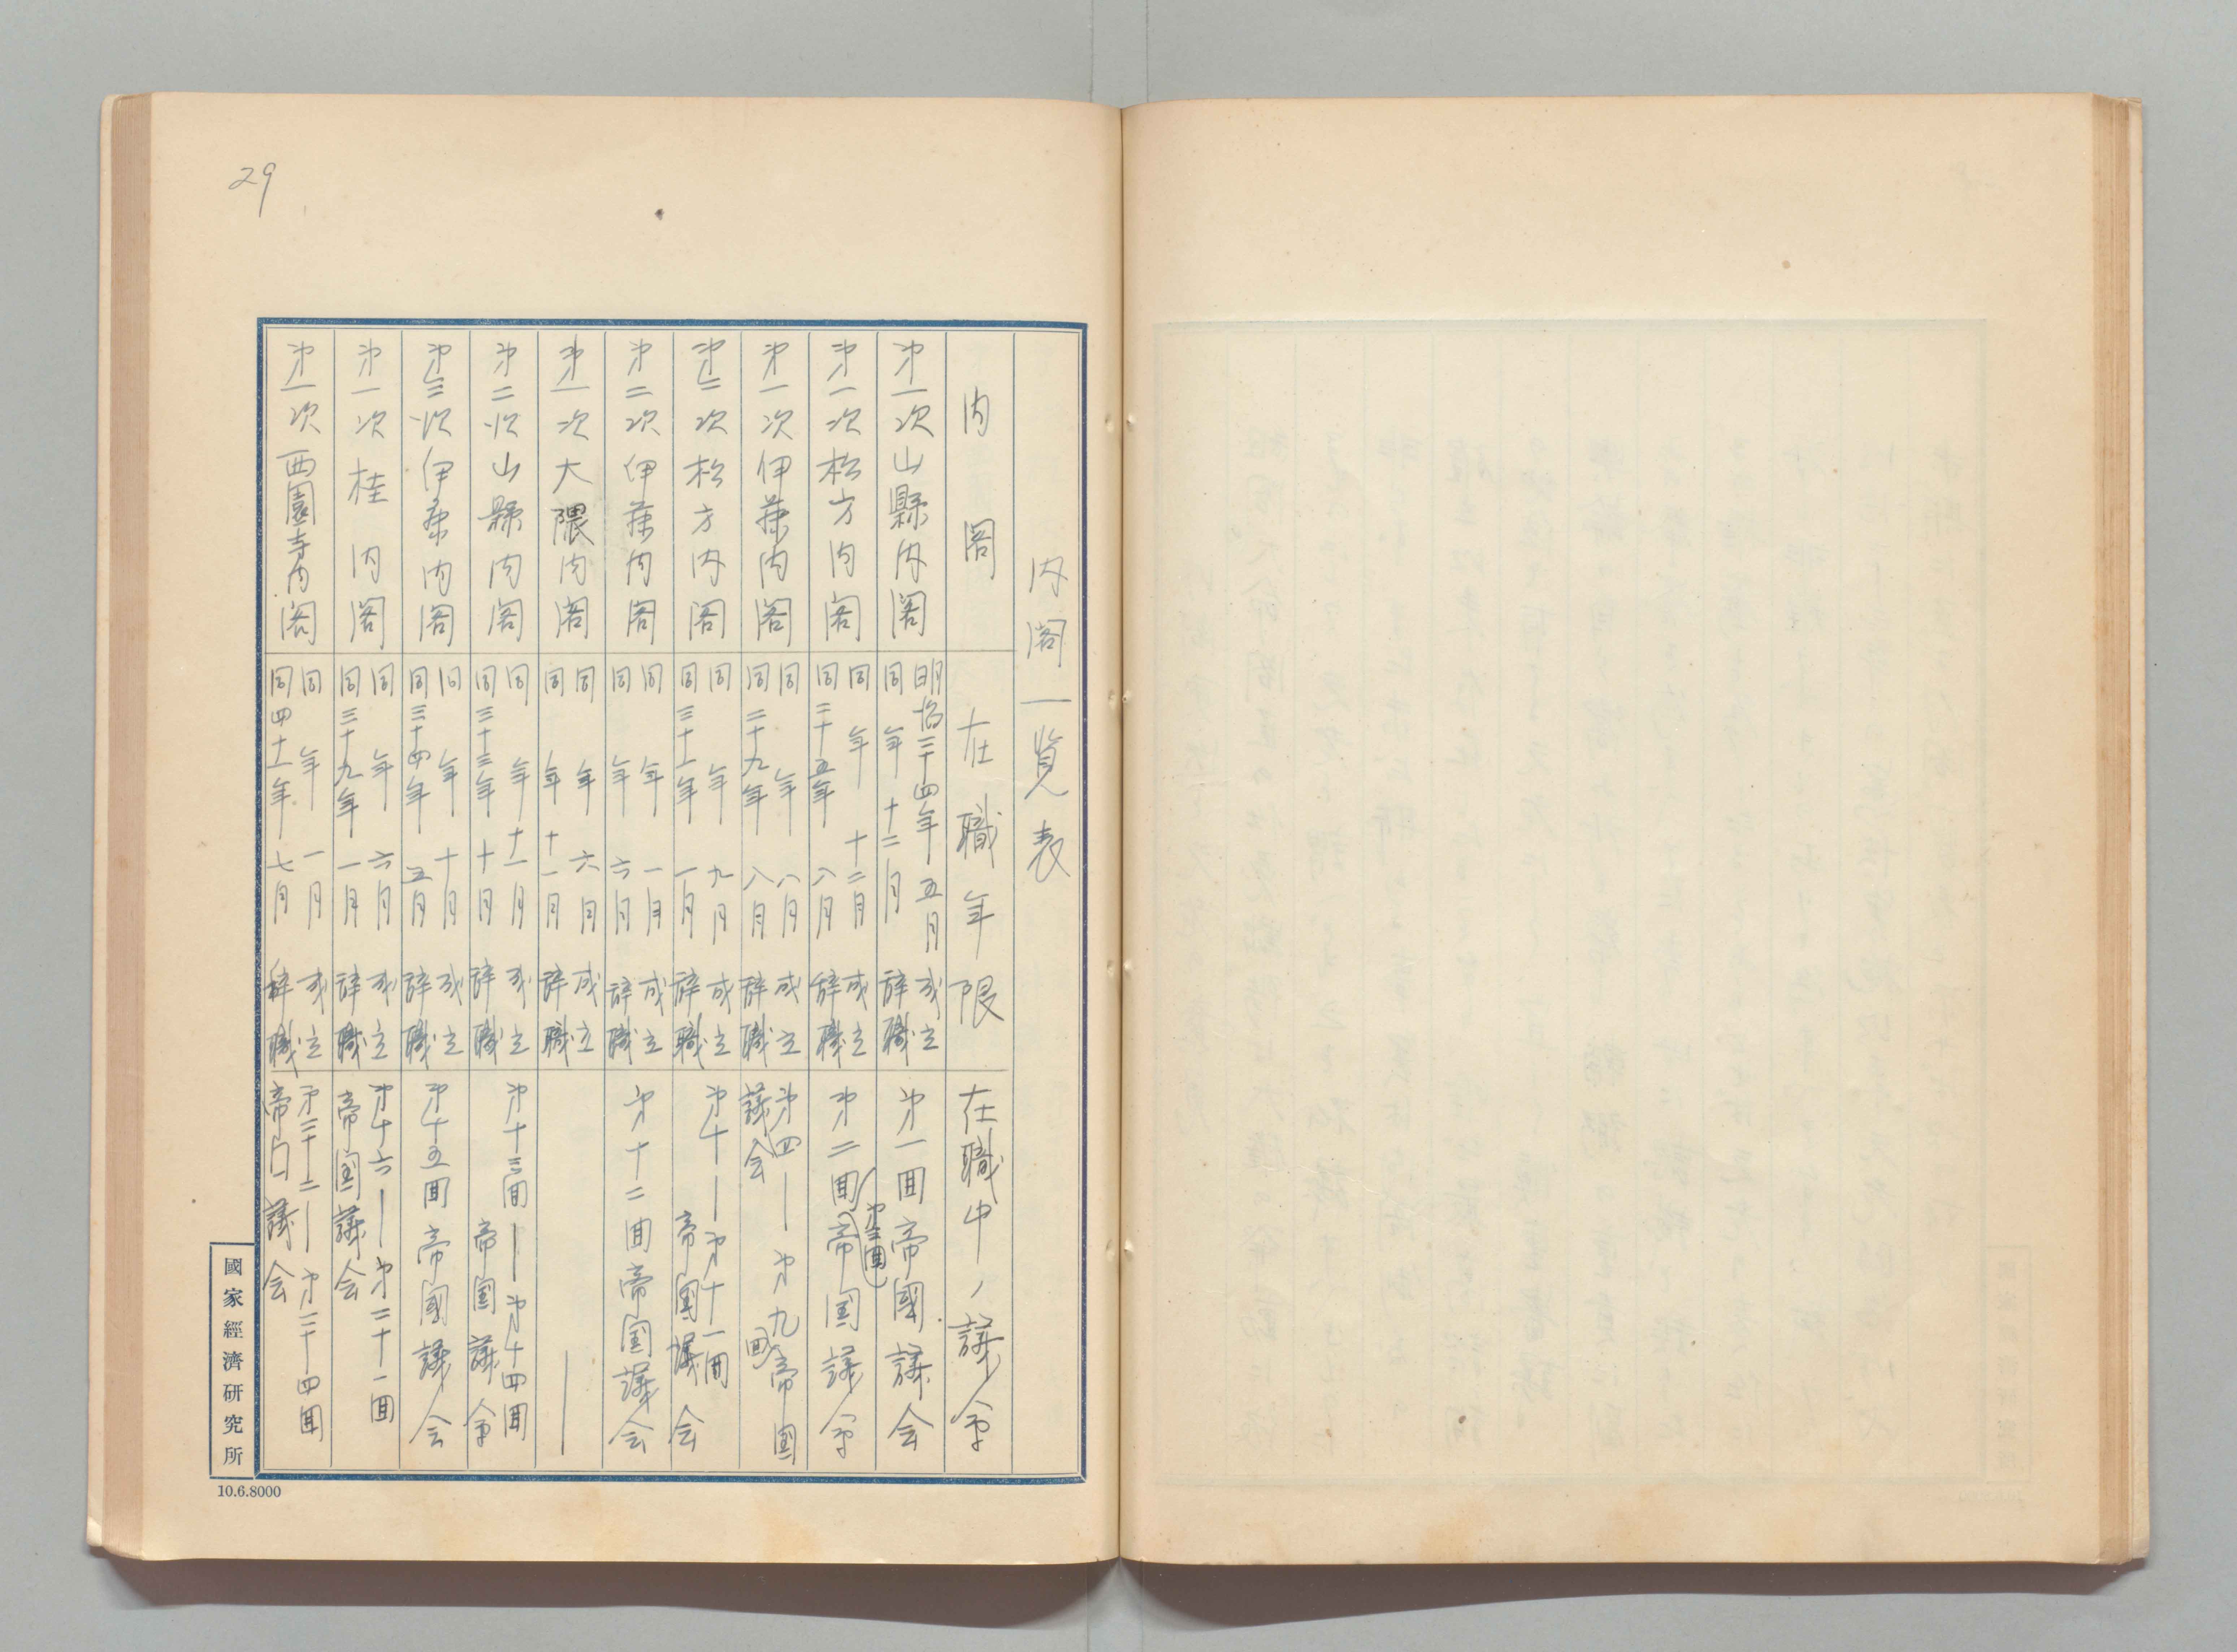 29
内閣一覧表
内閣 在職年限 在職中ノ議会
第一次山縣内閣 明治二十四年五月成立 第一回帝國議会
同年十二月辞職
第一次松方内閣 同年十二月成立 第二回(第三回)帝国議会
同二十五年八月辞職
第一次伊藤内閣 同年八月成立 第四—第九回帝国
同二十九年八月辞職 議会
第二次松方内閣 同年九月成立 第十—第十一回
同三十一年一月辞職 帝国議会
第二次伊藤内閣 同年一月成立 第十二回帝国議会
同年六月辞職
第一次大隈内閣 同年六月成立 —
同年十一月辞職
第二次山縣内閣 同年十一月成立 第十三回—第十四回
同三十三年十月辞職 帝国議会
第三次伊藤内閣 同年十月成立 第十五回帝國議会
同三十四年五月辞職
第一次桂内閣 同年六月成立 第十六—第二十一回
同三十九年一月辞職 帝国議会
第一次西園寺内閣 同年一月成立 第二十二—第二十四回
同四十一年七月辞職 帝口議会
國家經濟研究所
10.6.8000